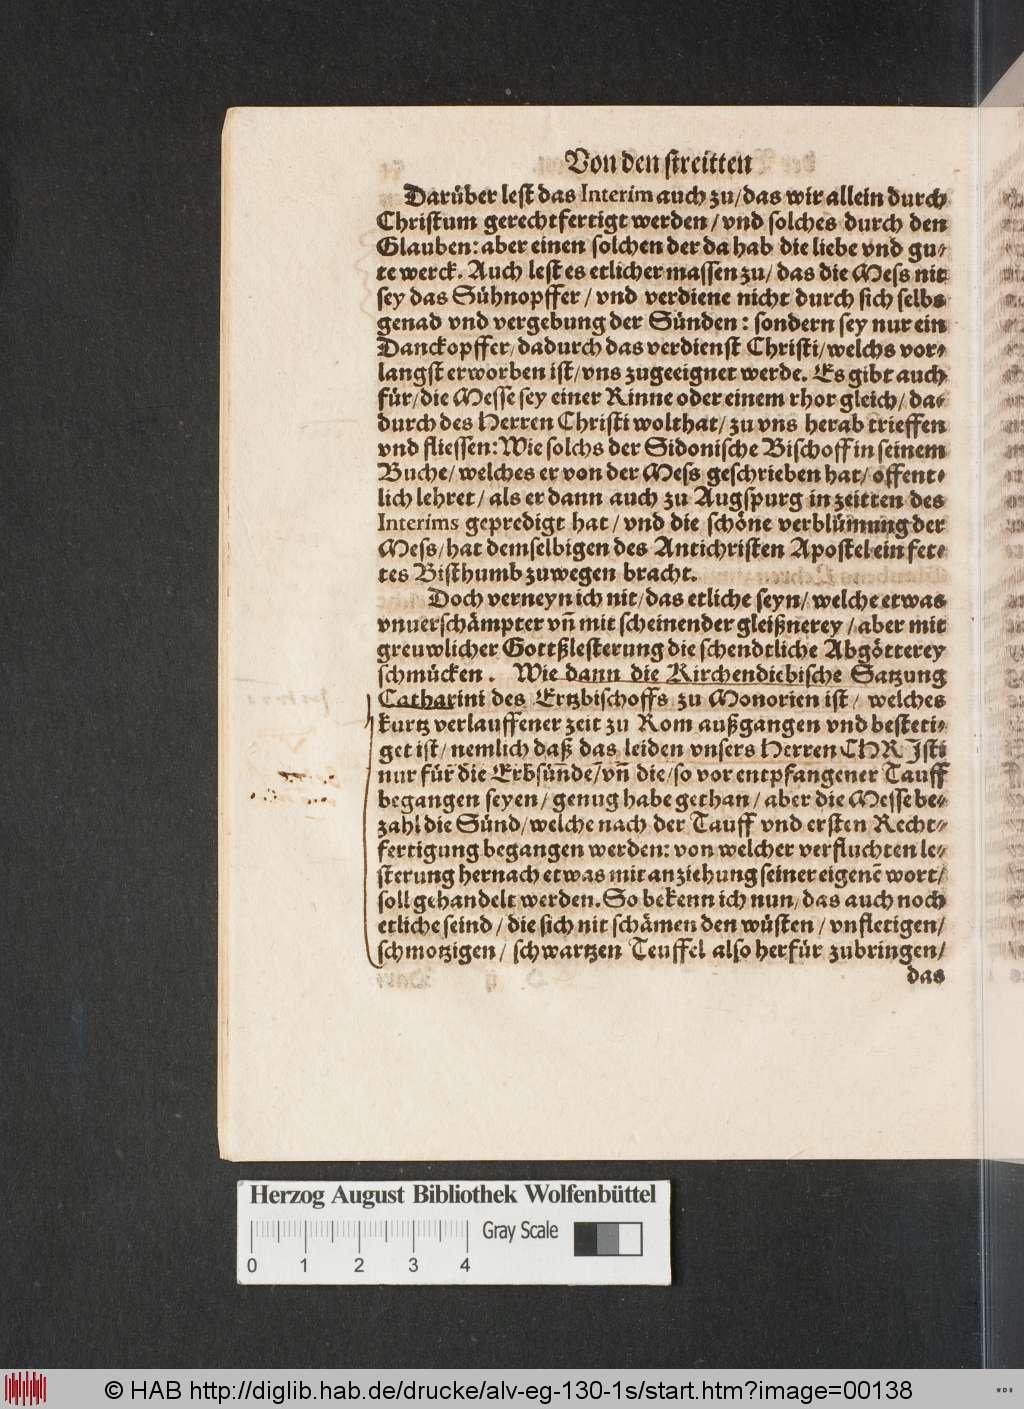 Von den streitten
Darüber lest das Interim auch zu/das wir allein durch
Christum gerechtfertigt werden/vnd solches durch den
Glauben: aber einen solchen der da hab die liebe vnd gu⸗
te werck. Auch lest es etlicher massen zu/das die Mess nit
sey das Sühnopffer/vnd verdiene nicht durch sich selbs
genad vnd vergebung der Sünden: sondern sey nur ein
Danckopffer/dadurch das verdienst Christi/welchs vor⸗
langst erworben ist/vns zugeeignet werde. Es gibt auch
für/die Messe sey einer Rinne oder einem rhor gleich/da⸗
durch des Herren Christi wolthat/zu vns herab trieffen
vnd fliessen: Wie solchs der Sidonische Bischoff in seinem
Buche/welches er von der Mess geschrieben hat/offent⸗
lich lehret/als er dann auch zu Augspurg in zeitten des
Interims gepredigt hat/vnd die schöne verblümung der
Mess/hat demselbigen des Antichristen Apostel ein fet⸗
tes Bisthumb zuwegen bracht.
Doch verneyn ich nit/das etliche seyn/welche etwas
vnuerschämpter vñ mit scheinender gleißnerey/aber mit
greuwlicher Gottßlesterung die schendtliche Abgötterey
schmücken. Wie dann die Kirchendiebische Satzung
Catharini des Ertzbischoffs zu Monorien ist/welches
kurtz verlauffener zeit zu Rom außgangen vnd besteti⸗
get ist/nemlich daß das leiden vnsers Herren CHRJsti
nur für die Erbsünde/vñ die/so vor entpfangener Tauff
begangen seyen/genug habe gethan/aber die Messe be⸗
zahl die Sünd/welche nach der Tauff vnd ersten Recht⸗
fertigung begangen werden: von welcher verfluchten le⸗
sterung hernach etwas mit anziehung seiner eigenẽ wort/
soll gehandelt werden. So bekenn ich nun/das auch noch
etliche seind/die sich nit schämen den wüsten/vnfletigen/
schmotzigen/schwartzen Teuffel also herfür zubringen/
das
Herzog August Bibliothek Wolfenbüttel
Gray Scale
0 1 2 3 4
© HAB http://diglib.hab.de/drucke/alv-eg-130-1s/start.htm?image=00138